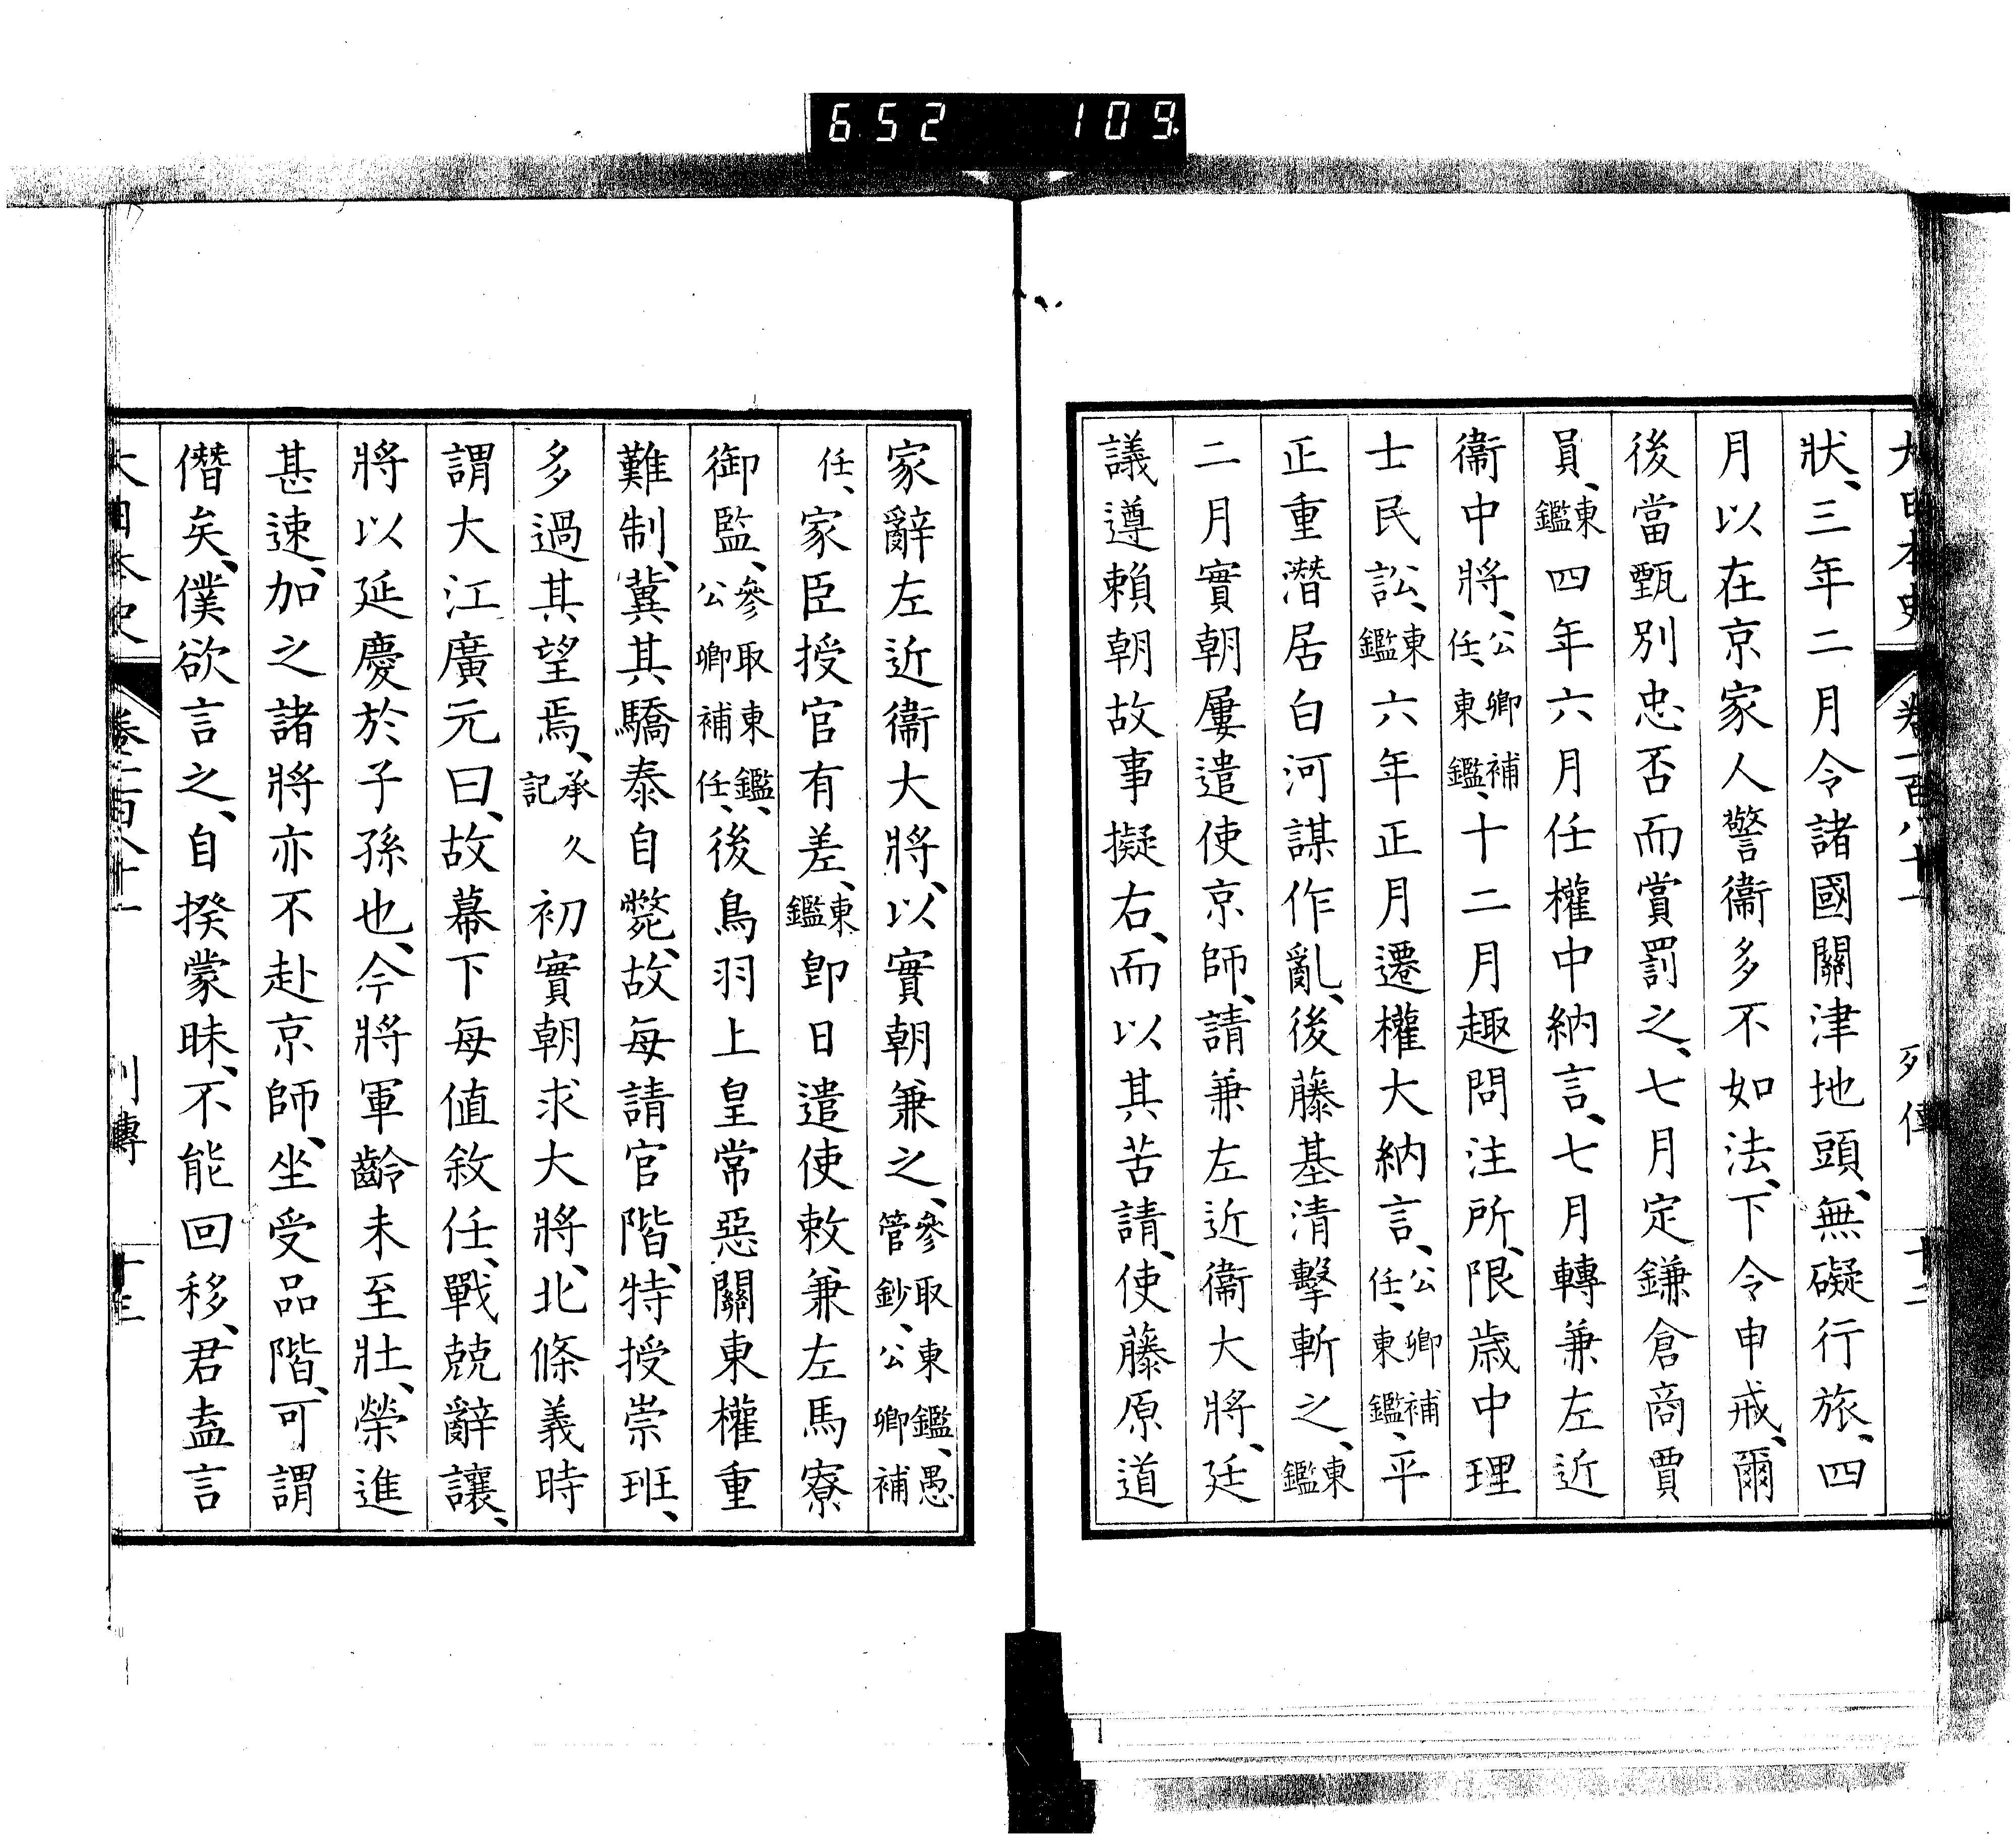 652 109
大日本史 卷一百八十一 列傳 十二
狀、三年二月令諸國關津地頭、無礙行旅、四
月以在京家人警衞多不如法、下令申戒、爾
後當甄別忠否而賞罰之、七月定鎌倉商賈
員、東鑑四年六月任權中納言、七月轉兼左近
衞中將、公卿補任、東鑑、十二月趣問注所、限歲中理
士民訟、東鑑六年正月遷權大納言、公卿補任、東鑑、平
正重潛居白河謀作亂、後藤基清擊斬之、東鑑
二月實朝屢遣使京師、請兼左近衞大將、廷
議遵賴朝故事擬右、而以其苦請、使藤原道
家辭左近衞大將、以實朝兼之、參取東鑑、愚管鈔、公卿補
任、家臣授官有差、東鑑卽日遣使敕兼左馬寮
御監、參取東鑑、公卿補任、後鳥羽上皇常惡關東權重
難制、冀其驕泰自斃、故每請官階、特授崇班、
多過其望焉、承久記初實朝求大將、北條義時
謂大江廣元曰、故幕下每值敘任、戰兢辭讓、
將以延慶於子孫也、今將軍齡未至壯、榮進
甚速、加之諸將亦不赴京師、坐受品階、可謂
僭矣、僕欲言之、自揆蒙昧、不能回移、君盍言
大日本史 卷一百八十一 列傳 十三